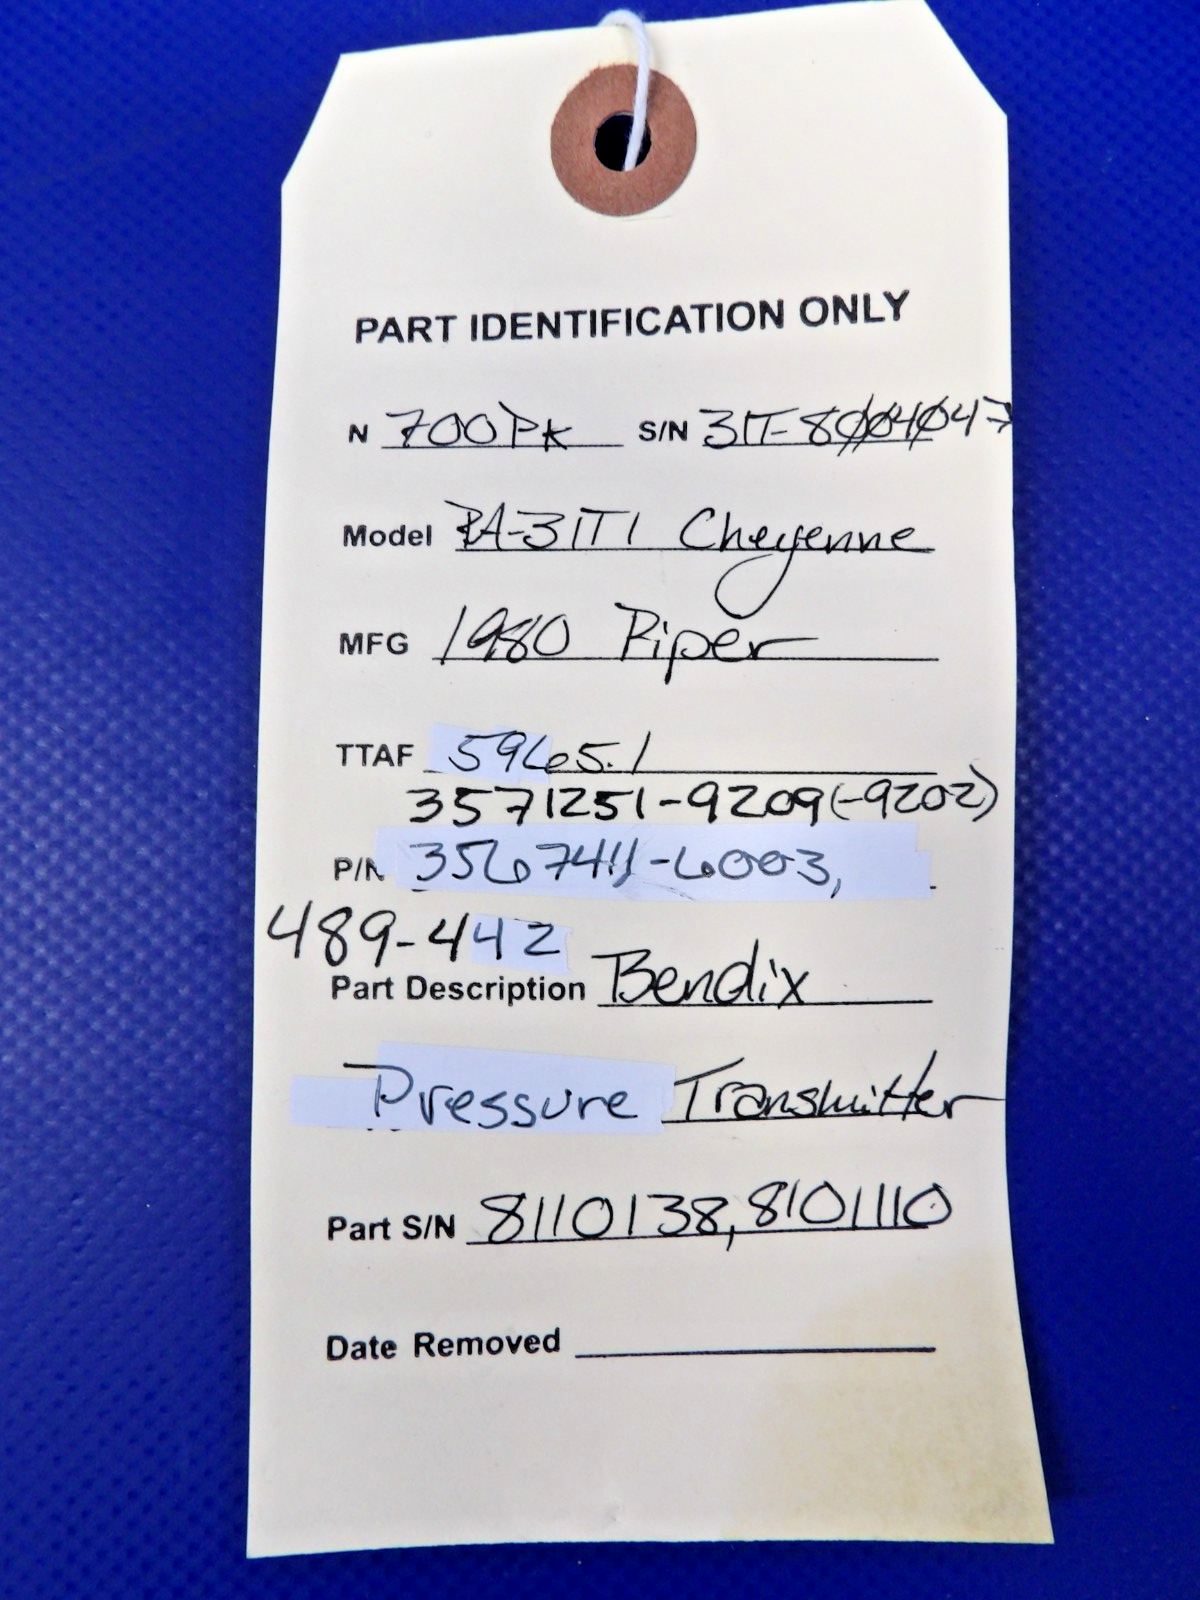 PART IDENTIFICATION ONLY
N 700PK S/N 31T-8004047
Model PA-31T1 Cheyenne
MFG 1980 Piper
TTAF 5965.1
3571251-9209(-9202)
P/N 3567411-6003,
489-442
Part Description Bendix
Pressure Transmitter
Part S/N 8110138, 8101110
Date Removed